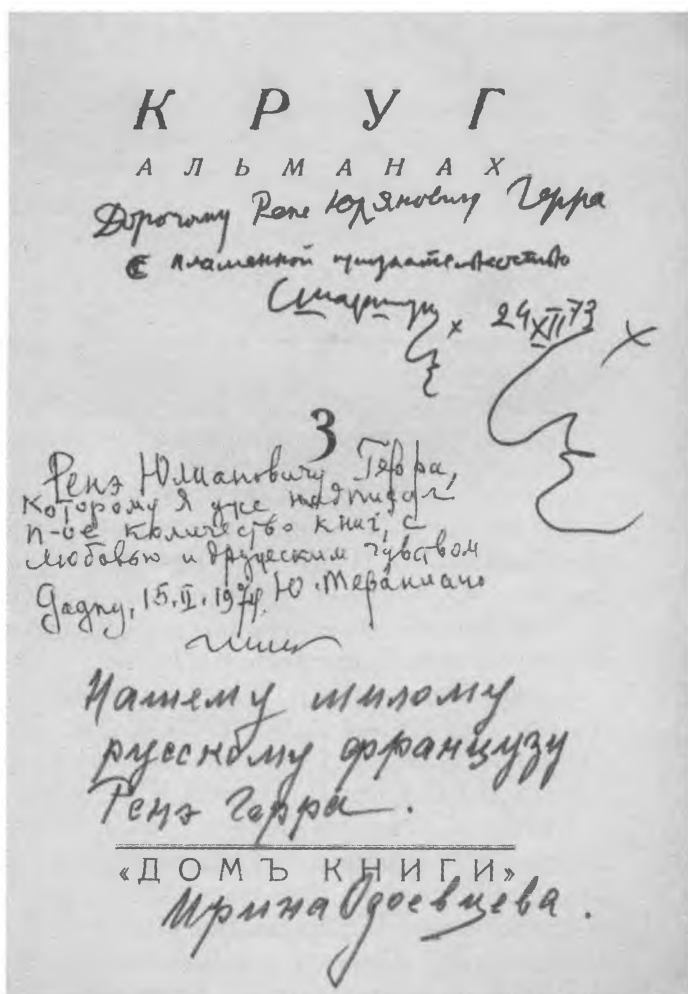 КРУГ
АЛЬМАНАХ
Дорогому Рене Юляновичу Герра
С пламенной признательностью
24 XII 73
3
Ренэ Юлиановичу Герра,
которому я уже надписал
n-ое количество книг, с
любовью и дружеским чувством
15.II.1974. Ю. Терапиано
Нашему милому
русскому французу
Ренэ Герра.
«ДОМЪ КНИГИ»
Ирина Одоевцева.